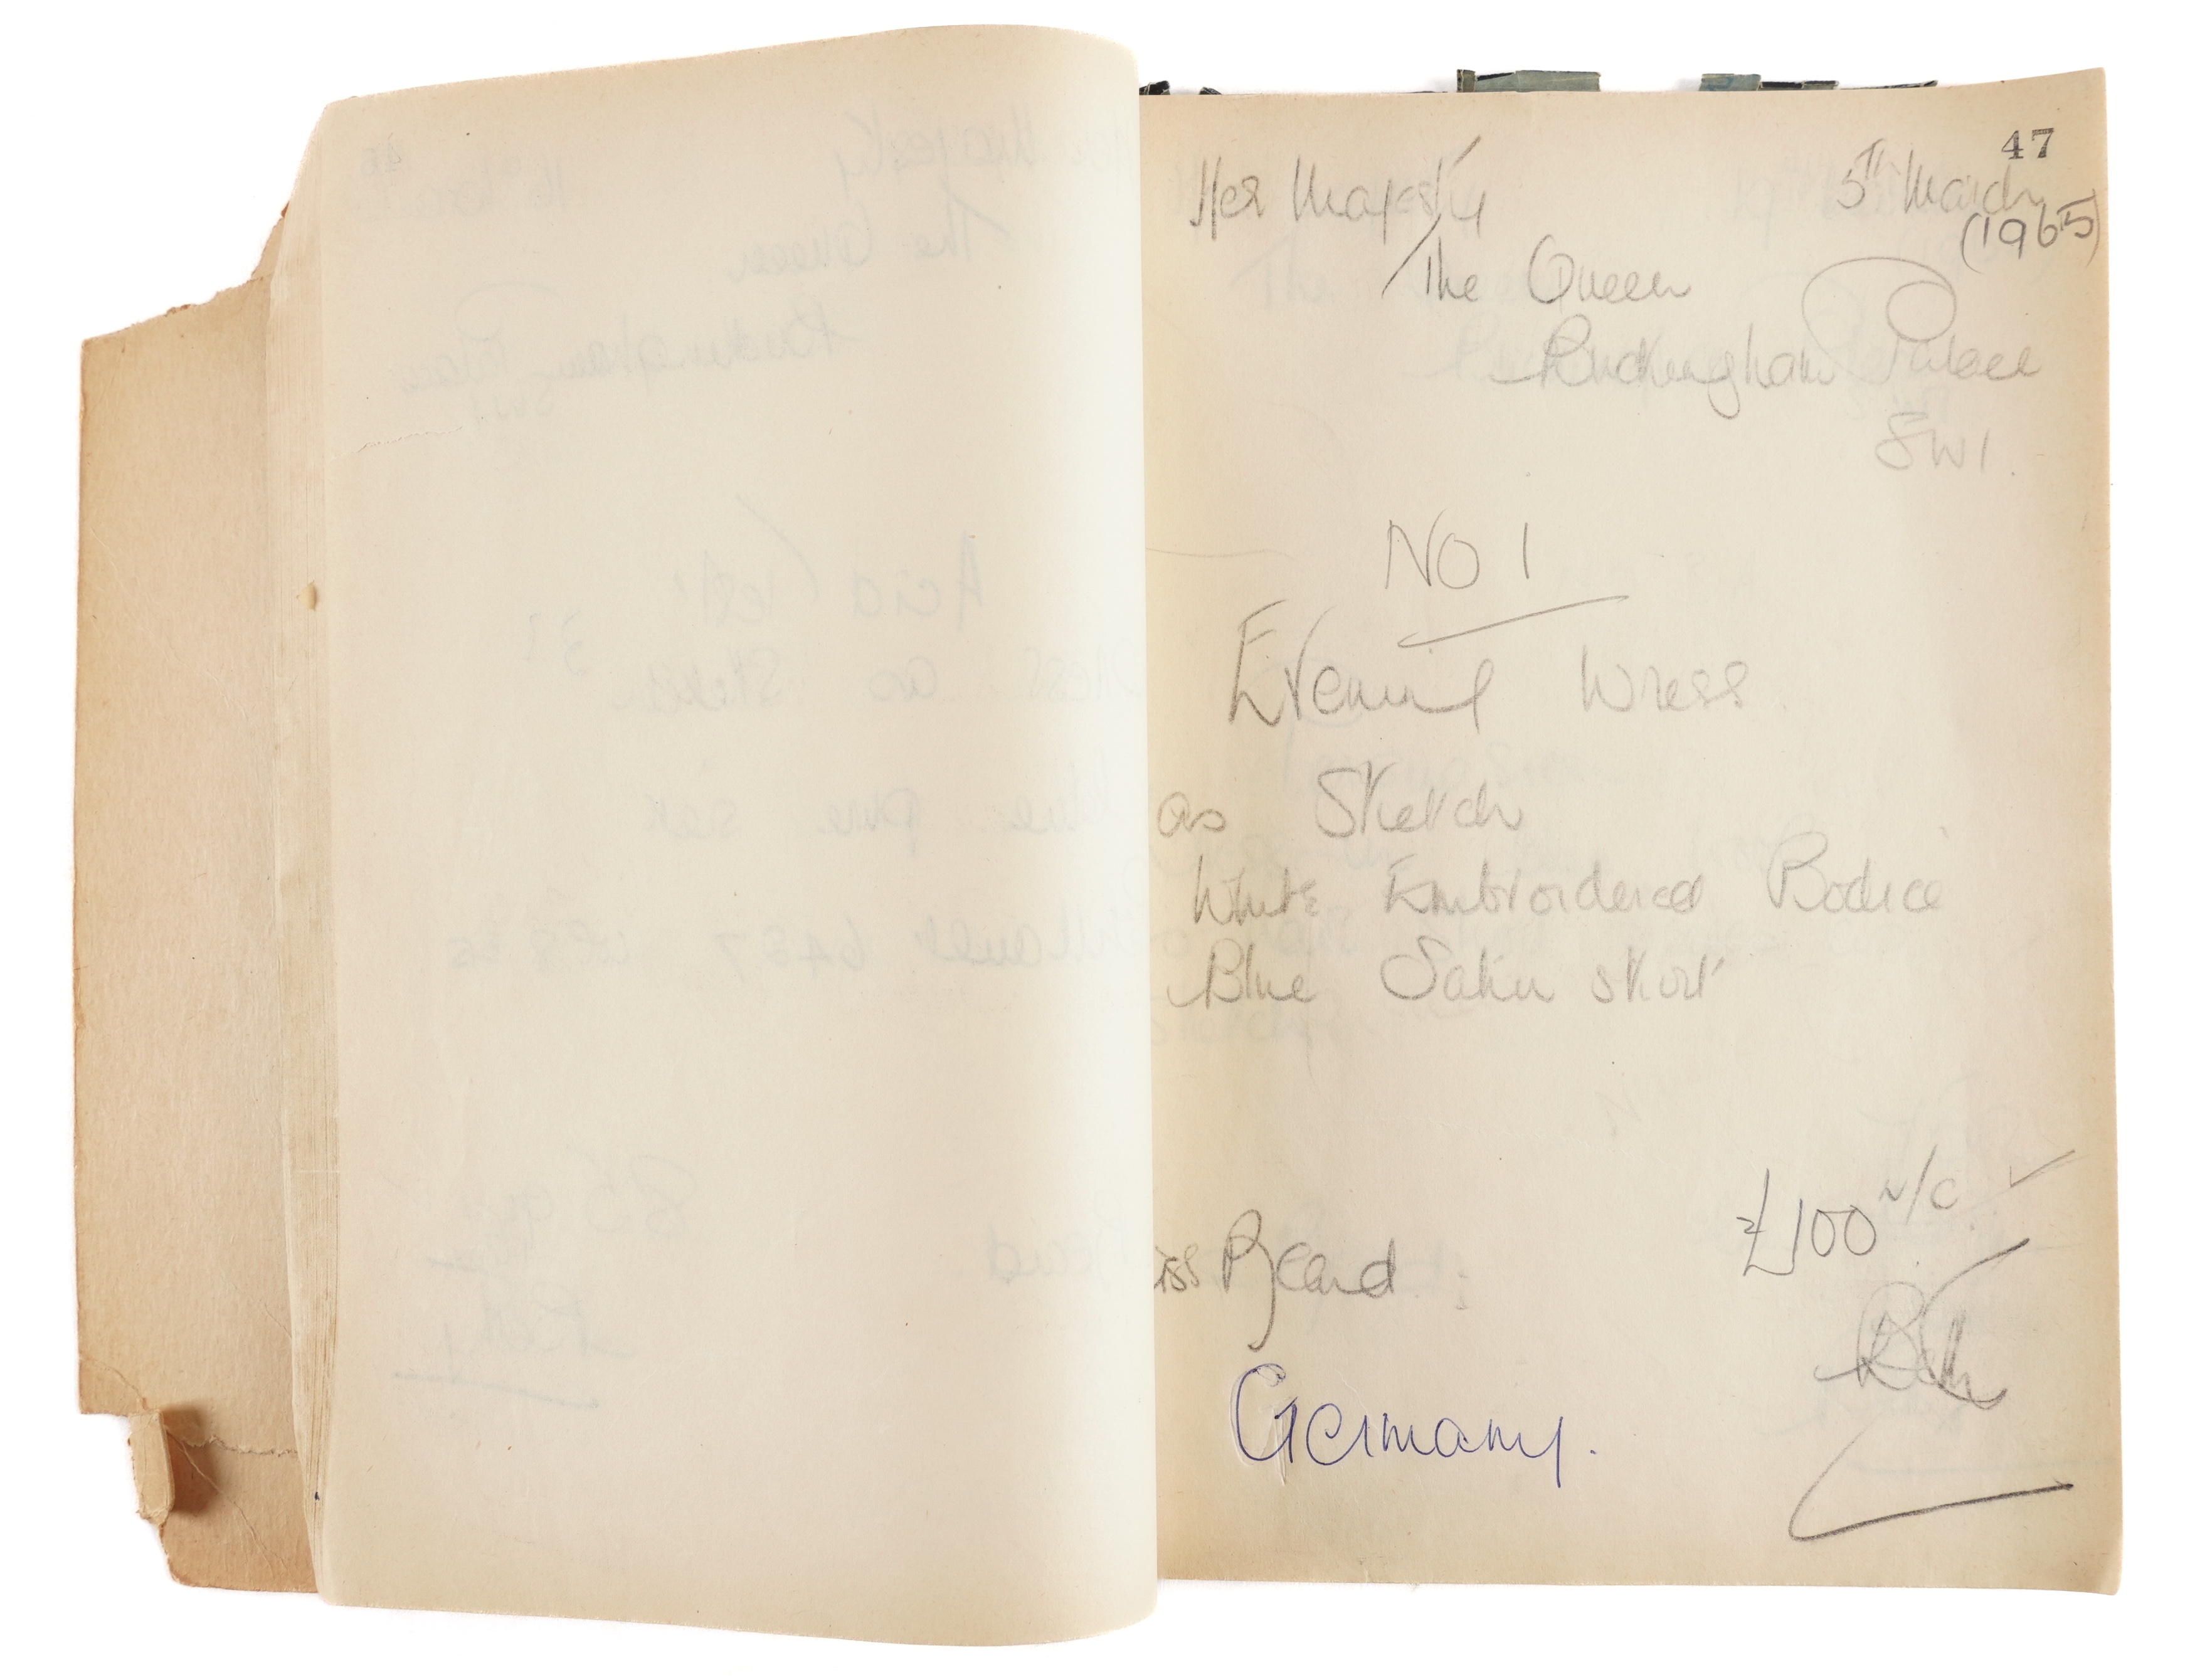 47
Her Majesty 5th March
(1965)
The Queen
Buckingham Palace
SW1.
NO 1
Evening Dress
as Sketch
White Embroidered Bodice
Blue Satin Skirt
£100 N/C
iss Beard
Germany.